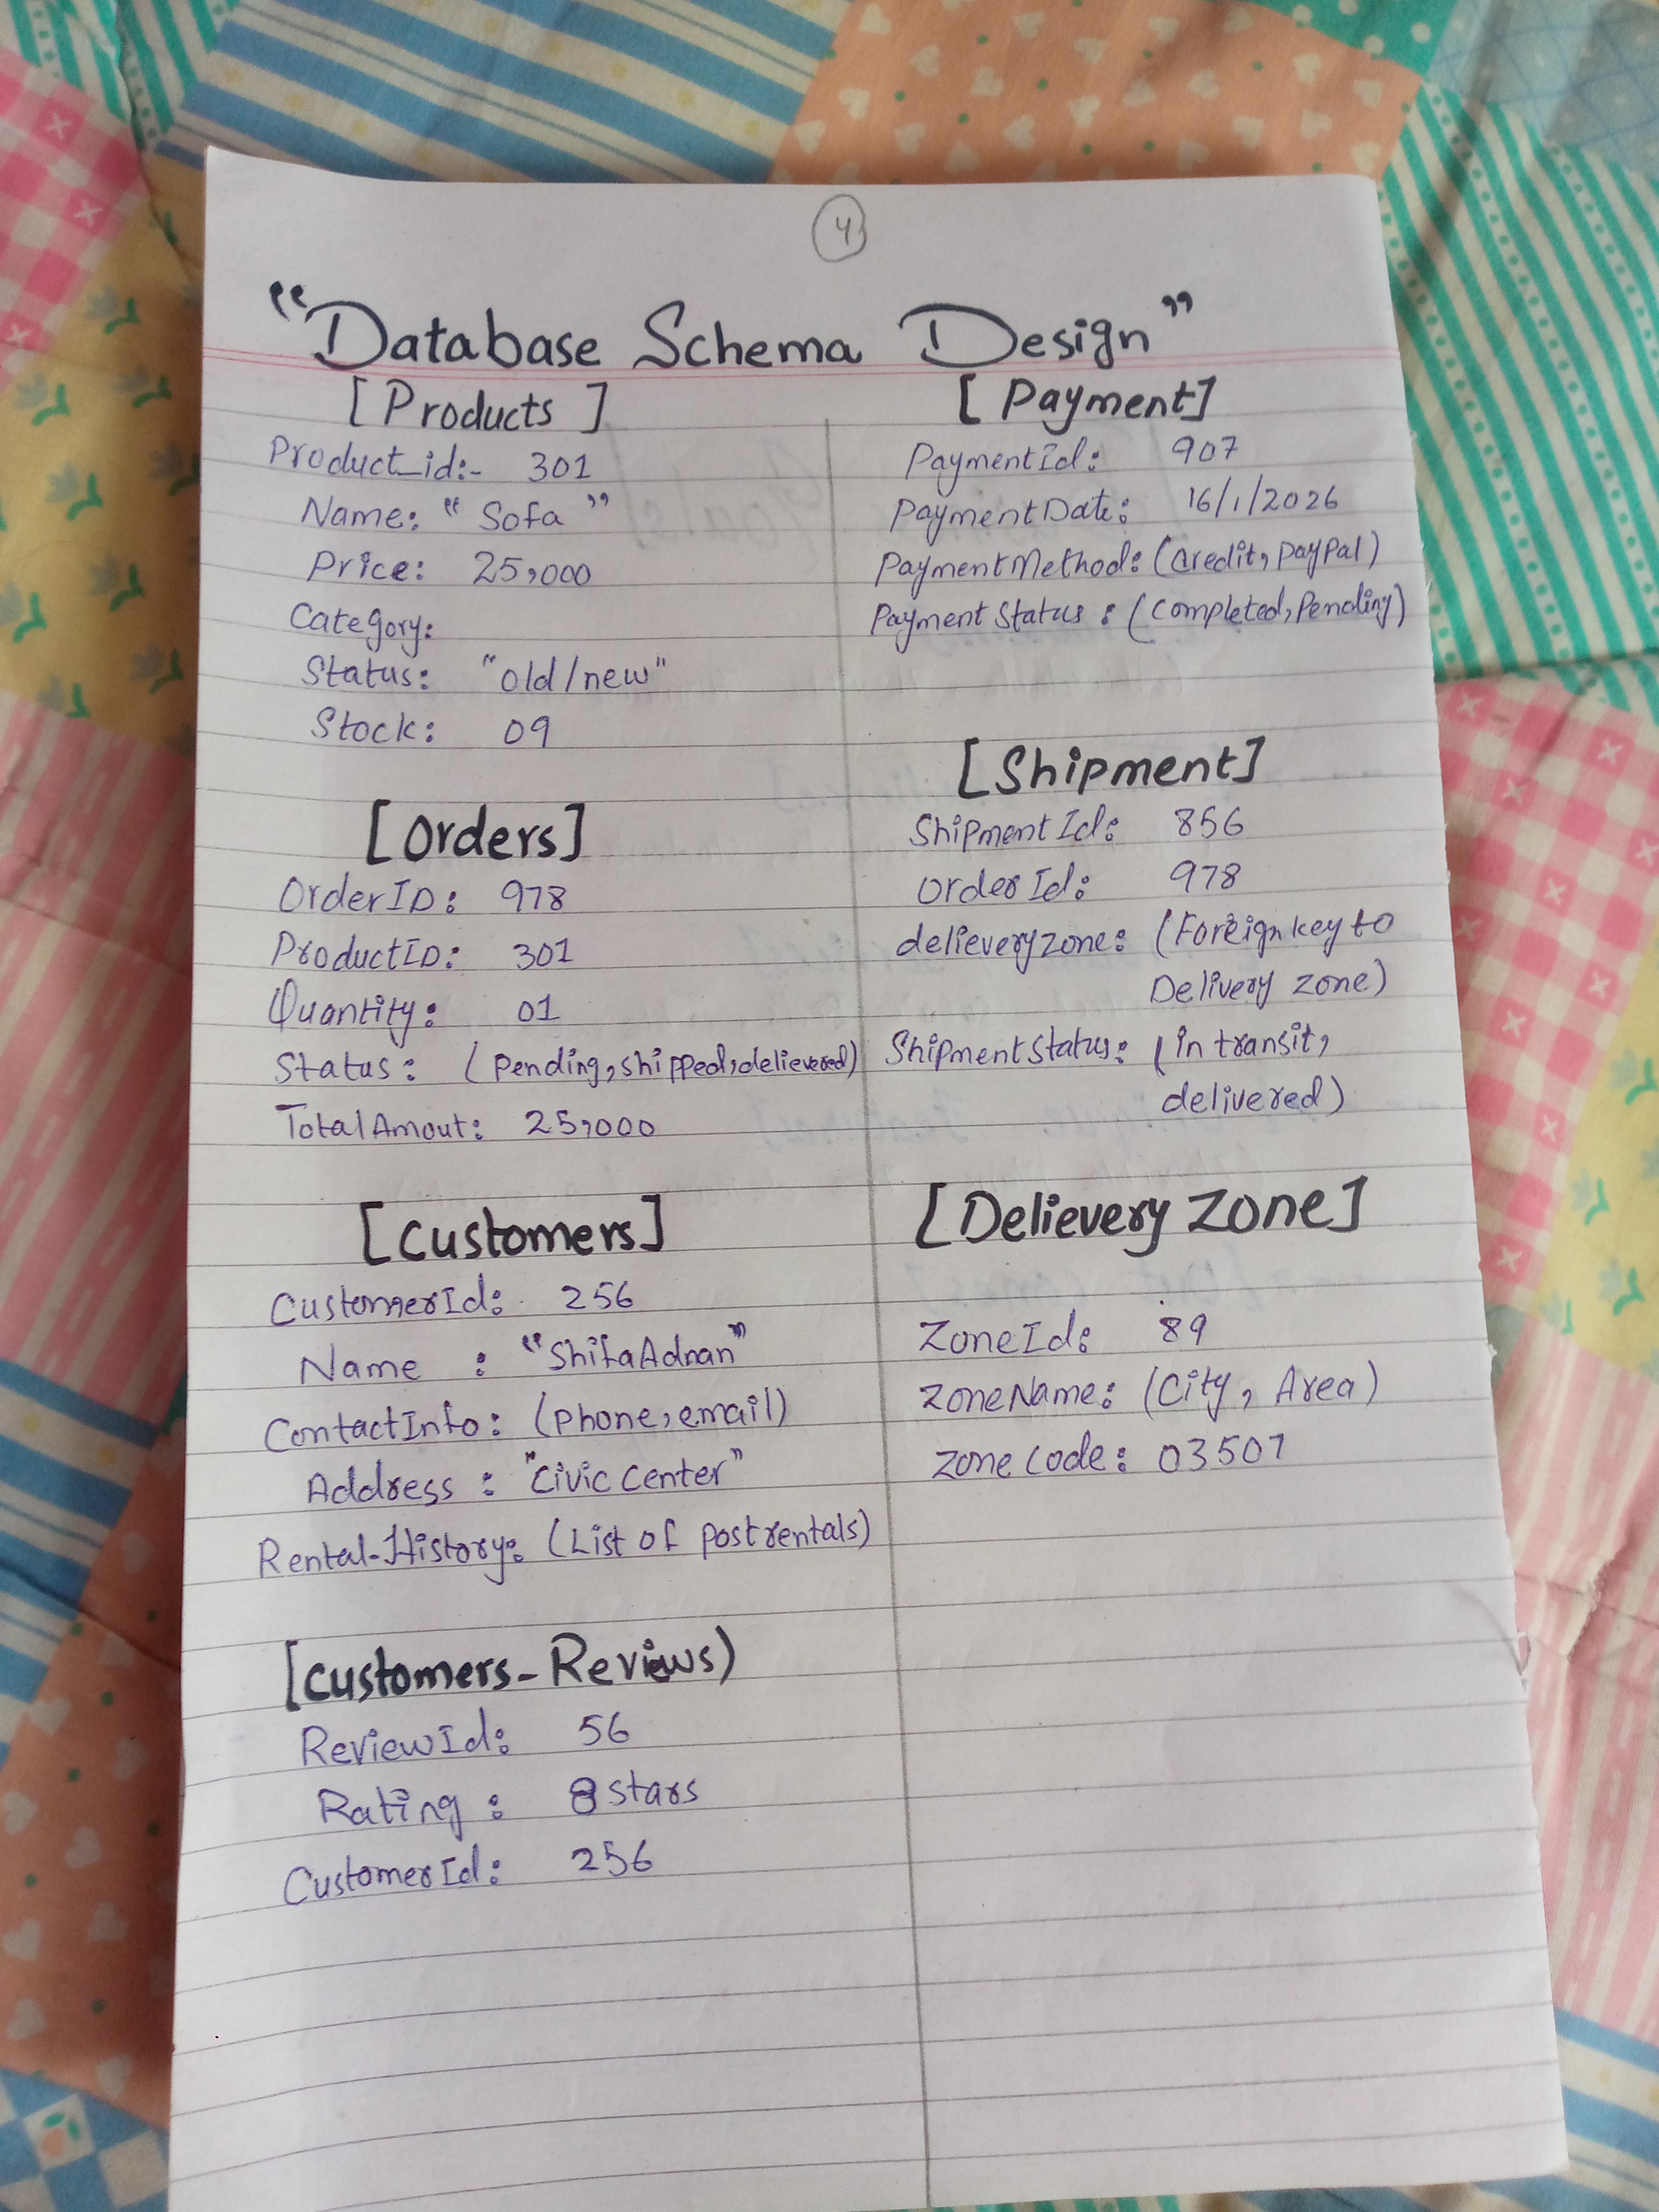 4
"Database Schema Design"
[Products]
Product_id:- 301
Name: "Sofa"
Price: 25,000
Category:
Status: "old/new"
Stock: 09
[Orders]
OrderID: 978
ProductID: 301
Quantity: 01
Status: (Pending, shipped, delievered)
TotalAmout: 25,000
[Customers]
CustomerId: 256
Name : "ShifaAdnan"
ContactInfo: (Phone, email)
Address : "Civic Center"
Rental-History: (List of post rentals)
[Customers-Reviews)
ReviewId: 56
Rating : 8 stars
CustomerId: 256
[Payment]
PaymentId: 907
PaymentDate: 16/1/2026
PaymentMethod: (Credit, PayPal)
Payment Status : (Completed, Pending)
[Shipment]
ShipmentId: 856
Order Id: 978
delieveryzone: (Foreign key to
Delivery zone)
ShipmentStatus: (in transit,
delivered)
[Delievery Zone]
ZoneId: 89
ZoneName: (City, Area)
Zone Code: 03507